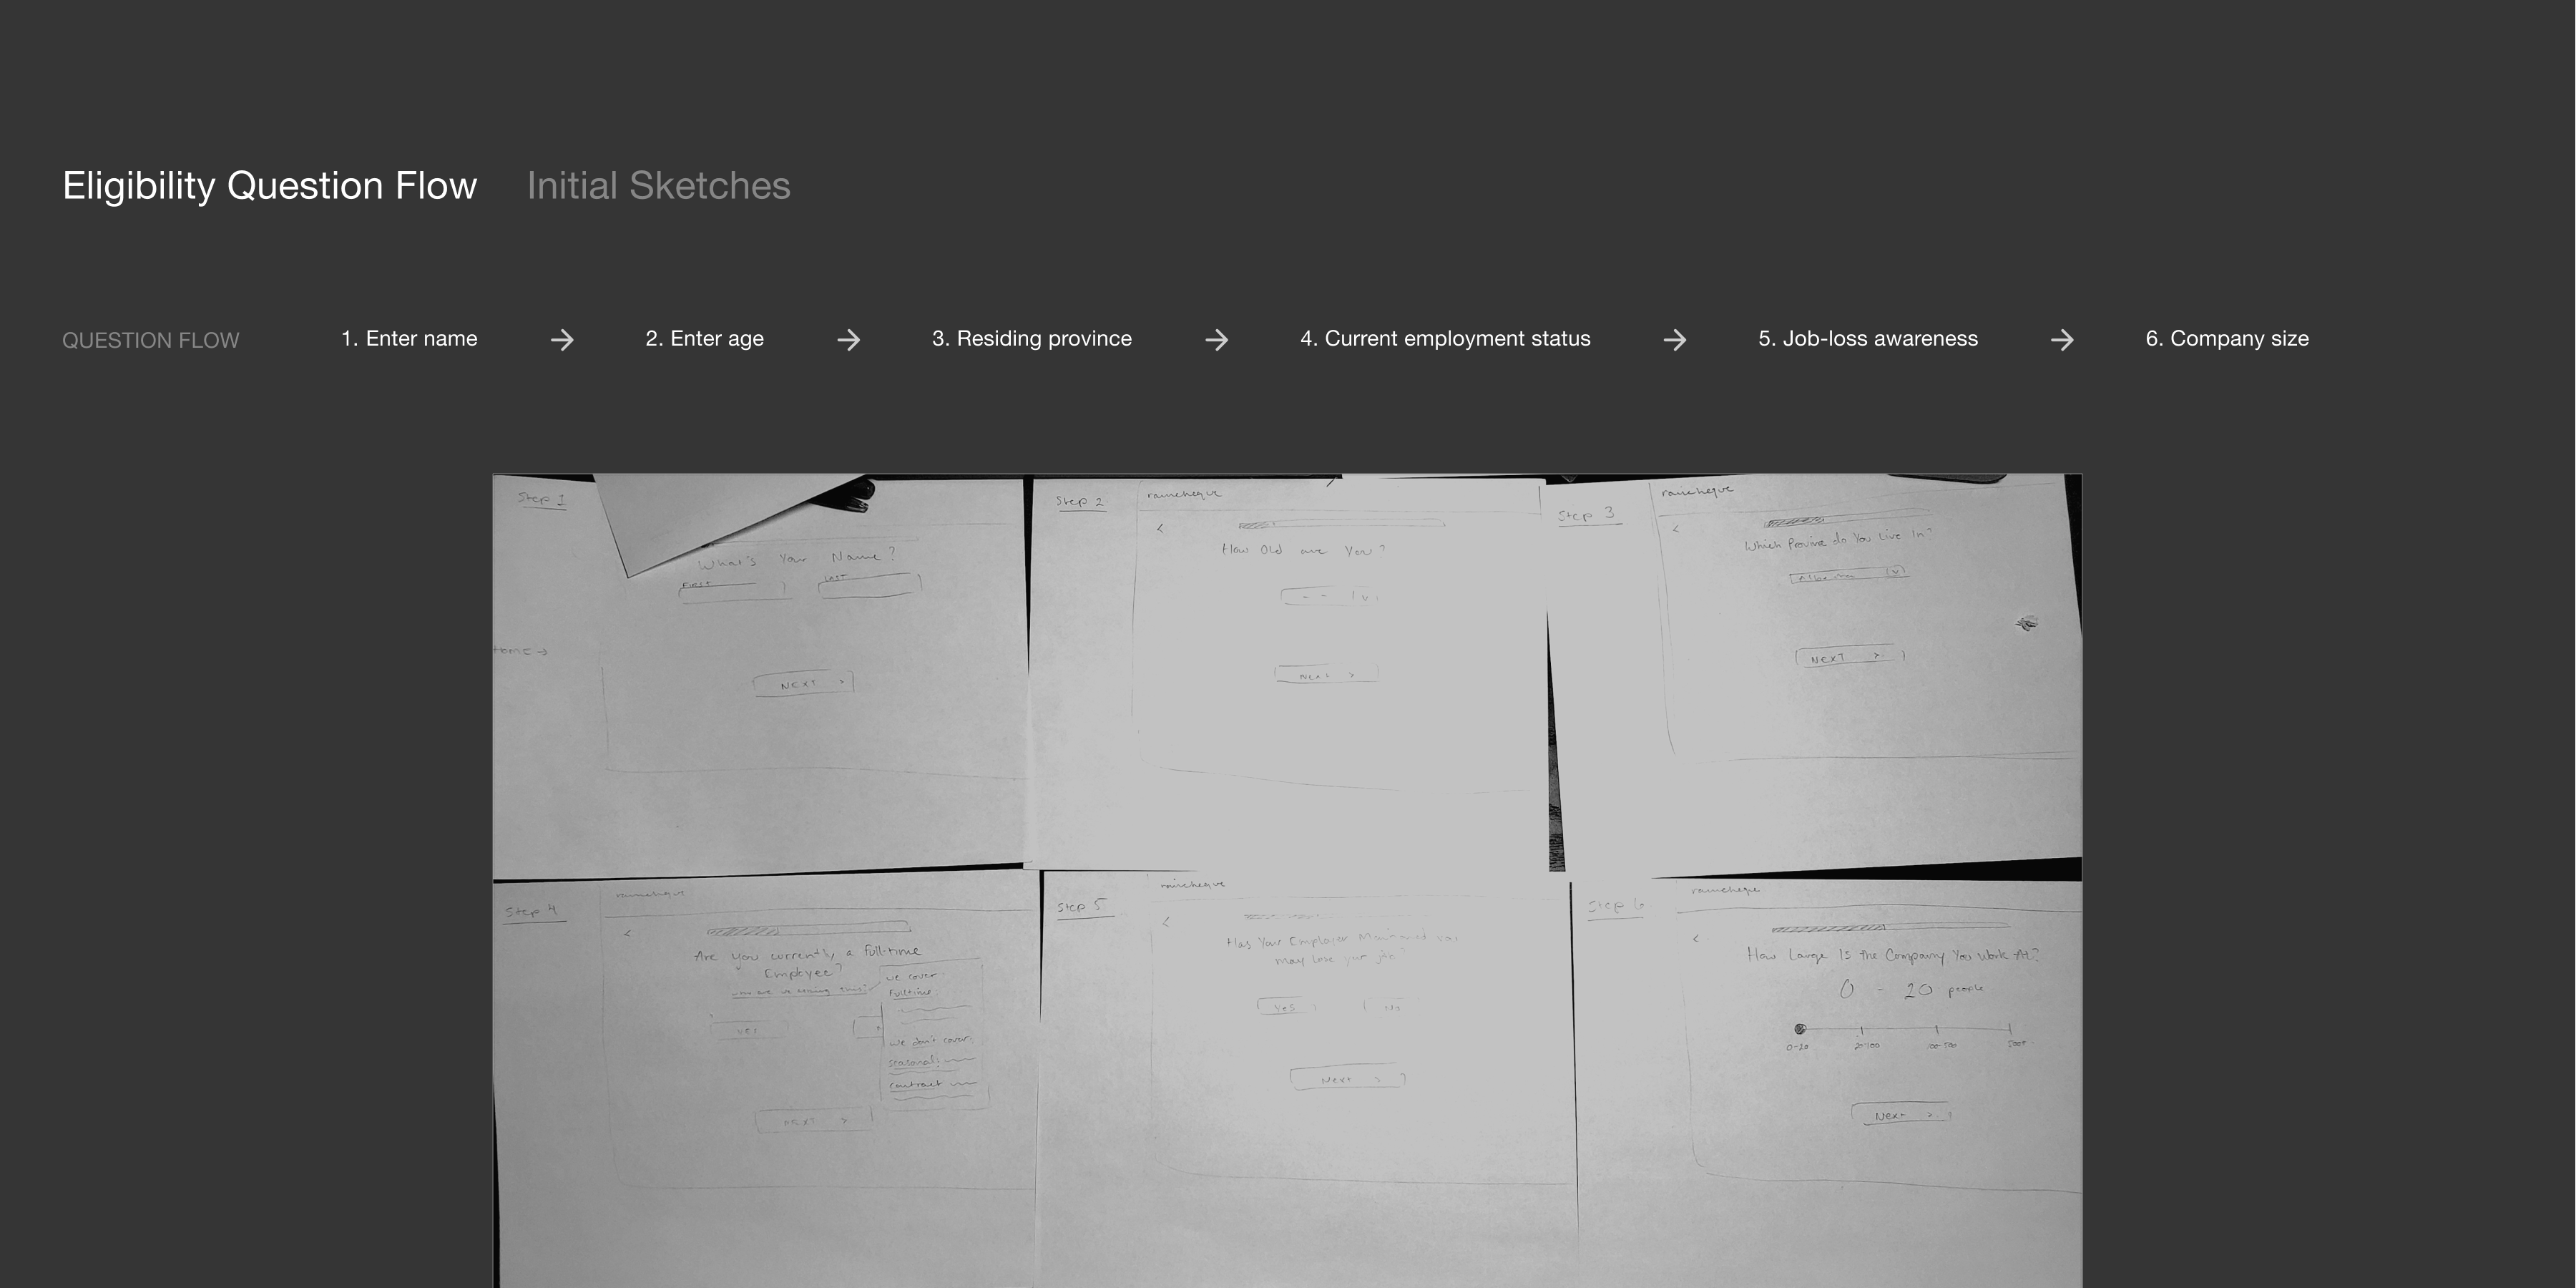 Eligibility Question Flow Initial Sketches
QUESTION FLOW 1. Enter name → 2. Enter age → 3. Residing province → 4. Current employment status → 5. Job-loss awareness → 6. Company size
Step 1
What's Your Name?
FIRST LAST
HOME →
NEXT >
Step 2
raincheque
<
How Old are You?
-- v
NEXT >
Step 3
raincheque
<
Which Province do You Live In?
Alberta v
NEXT >
Step 4
raincheque
<
Are you currently a Full-time
Employee?
why are we asking this?
we cover
Fulltime:
YES
we don't cover:
seasonal:
contract
NEXT >
Step 5
raincheque
<
Has Your Employer Mentioned you
may lose your job?
Yes No
Next >
Step 6
raincheque
<
How Large Is the Company You Work At?
0 - 20 people
0-20 20-100 100-500 500+
Next >